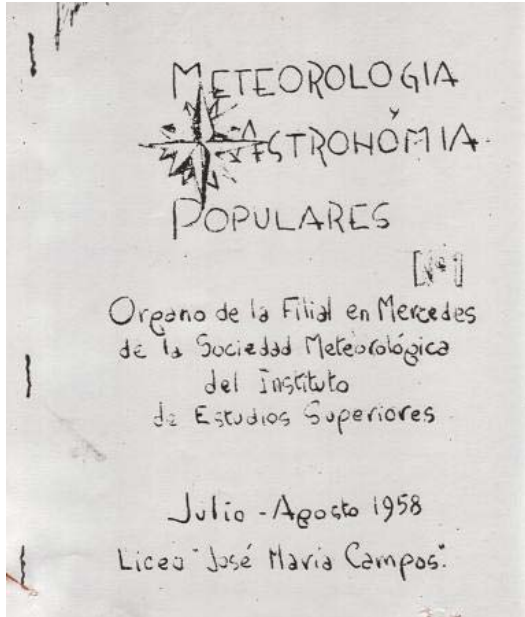 METEOROLOGIA
Y
ASTRONOMIA
POPULARES
[Nº1]
Organo de la Filial en Mercedes
de la Sociedad Meteorológica
del Instituto
de Estudios Superiores
Julio - Agosto 1958
Liceo "José María Campos".